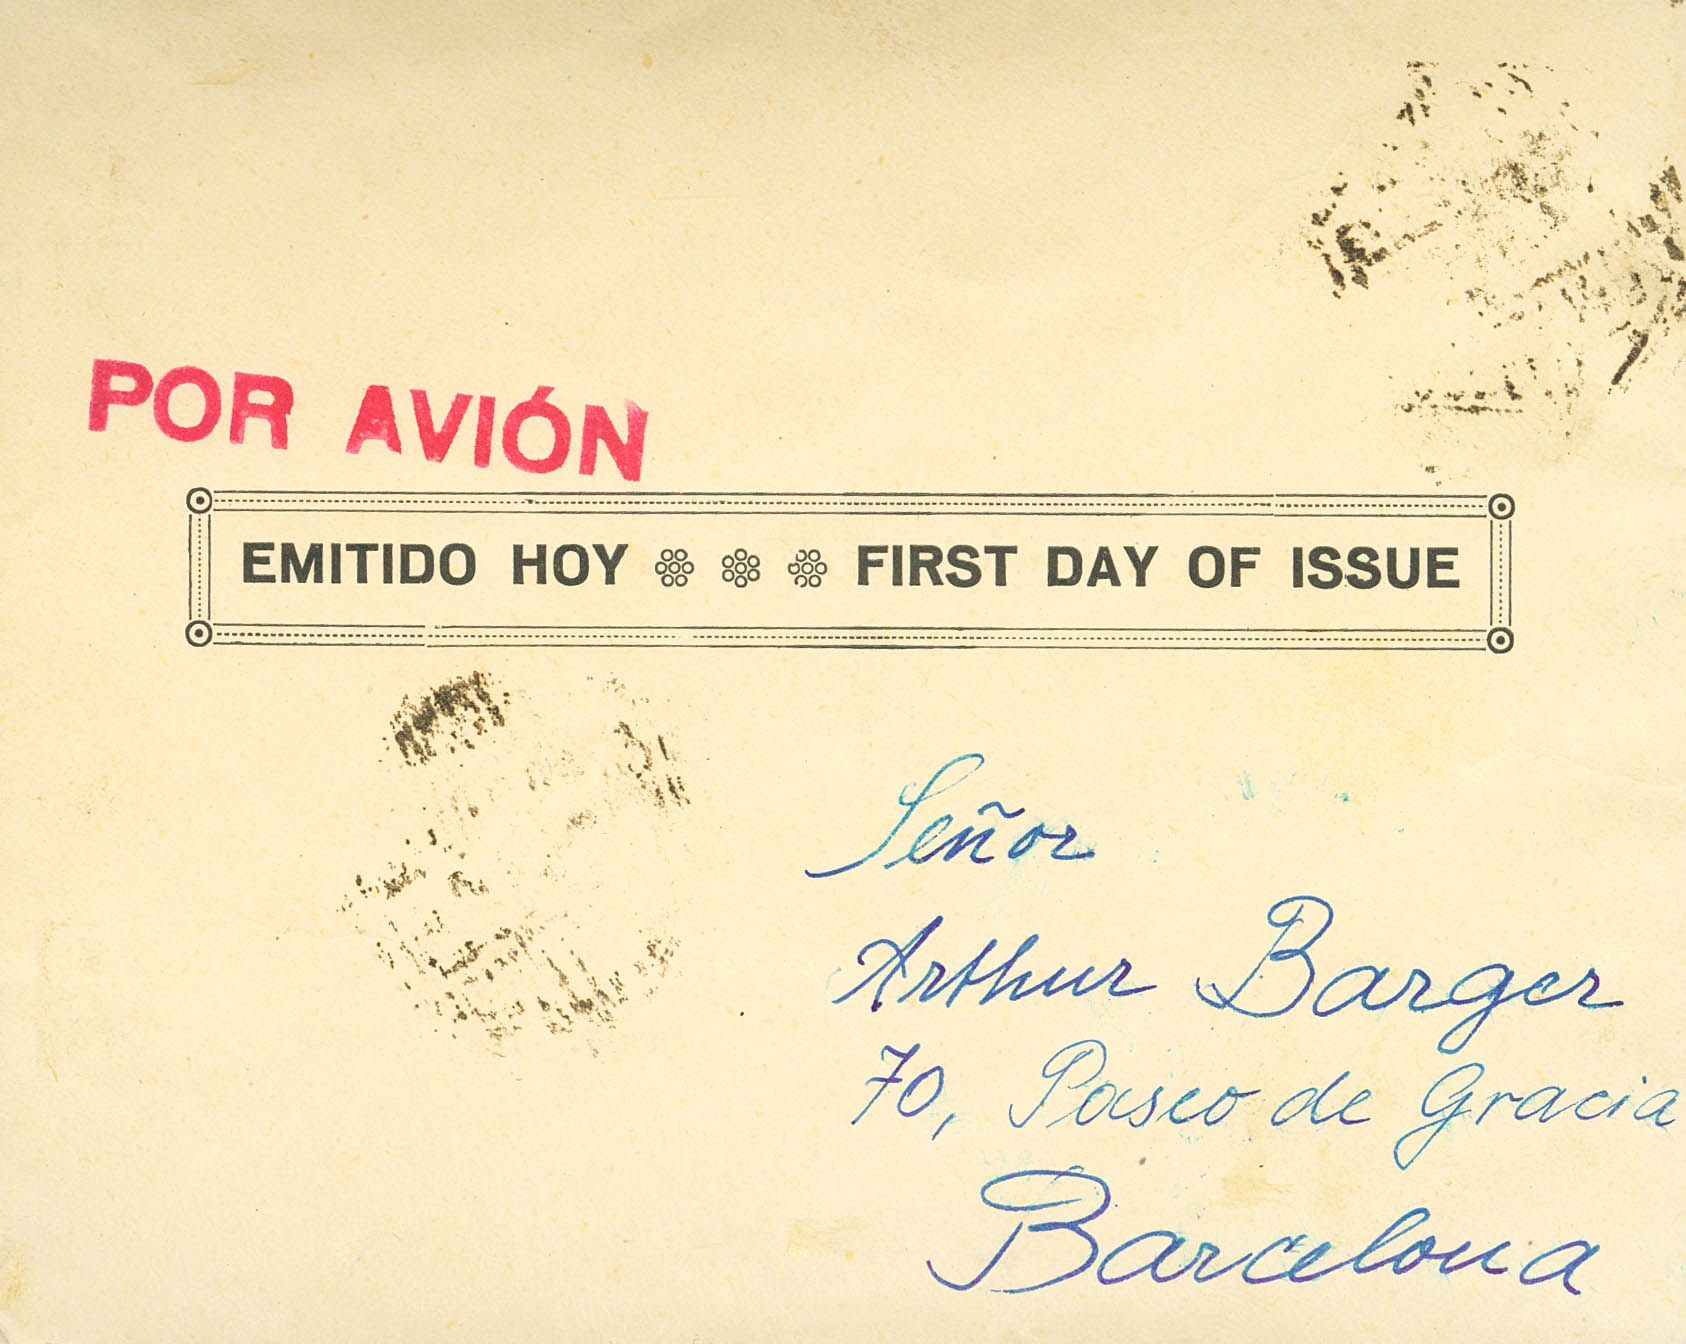 POR AVIÓN
EMITIDO HOY FIRST DAY OF ISSUE
Señor
Arthur Barger
70, Paseo de Gracia
Barcelona